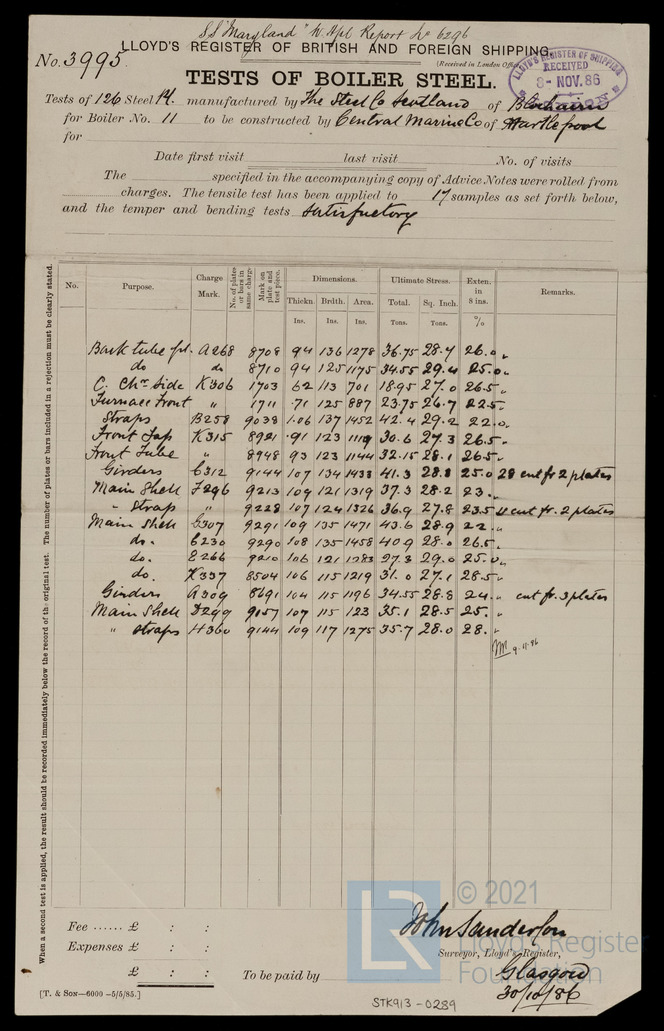 S.S. "Maryland" W. Hpl Report No 6296
No. 3995.
LLOYD'S REGISTER OF BRITISH AND FOREIGN SHIPPING.
(Received in London Office
LLOYD'S REGISTER OF SHIPPING RECEIVED 8- NOV. 86
TESTS OF BOILER STEEL.
Tests of 126 Steel Pl. manufactured by The Steel Co Scotland of Blochairn
for Boiler No. 11 to be constructed by Central Marine Co of Hartlepool
for
Date first visit last visit No. of visits
The specified in the accompanying copy of Advice Notes were rolled from
charges. The tensile test has been applied to 17 samples as set forth below,
and the temper and bending tests satisfactory
When a second test is applied, the result should be recorded immediately below the record of the original test. The number of plates or bars included in a rejection must be clearly stated.
No. Purpose. Charge Mark. No. of plates or bars in same charge. Mark on plate and test piece. Dimensions. Ultimate Stress. Exten. in 8 ins. Remarks.
Thickn. Brdth. Area. Total. Sq. Inch.
Ins. Ins. Ins. Tons. Tons. %
Back tube pl. A268 8708 94 136 1278 36.75 28.7 26.0 "
do do 8710 94 125 1175 34.55 29.4 25.0 "
C. Chr Side K306 1703 62 113 701 18.95 27.0 26.5 "
Furnace Front " 1711 .71 125 887 23.75 26.7 22.5 "
Straps B258 9038 1.06 137 1452 42.4 29.2 22.0 "
Front Top K315 8921 .91 123 1119 30.6 27.3 26.5 "
Front Tube " 8948 93 123 1144 32.15 28.1 26.5 "
Girders C312 9144 107 134 1433 41.3 28.8 25.0 28 cut fr 2 plates
Main Shell F296 9213 109 121 1319 37.3 28.2 23. "
" Strap " 9228 107 124 1326 36.9 27.8 23.5 4 cut fr. 2 plates
Main Shell G307 9291 109 135 1471 43.6 28.9 22. "
do. C230 9290 108 135 1458 40.9 28.0 26.5 "
do. E266 9210 106 121 1283 37.3 29.0 25.0 "
do. K337 8504 106 115 1219 31.0 27.1 28.5 "
Girders A309 8691 104 115 1196 34.55 28.8 24. " cut fr. 3 plates
Main Shell D299 9157 107 115 123 35.1 28.5 25. "
" Straps H360 9144 109 117 1275 35.7 28.0 28. "
9.11.86
© 2021
LR
Lloyd's Register
Foundation
Fee ...... £ : :
John Sanderson
Expenses £ : :
Surveyor, Lloyd's Register,
£ : :
To be paid by
Glasgow
30/10/86
[T. & SON—6000 —5/5/85.]
STK913-0289